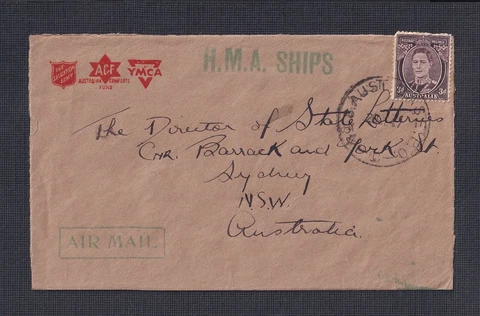 H.M.A. SHIPS
THE SALVATION ARMY
ACF
AUSTRALIAN COMFORTS FUND
YMCA
POSTAGE
3d 3d
AUSTRALIA
The Director of State Lotteries
Cnr. Barrack and York St.
Sydney
N.S.W.
Australia.
AIR MAIL